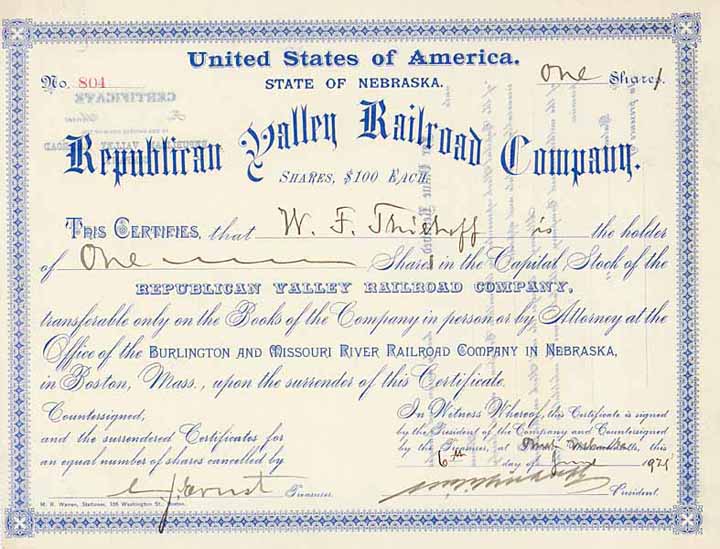 United States of America.
No. 804
STATE OF NEBRASKA.
One Share
Republican Valley Railroad Company.
SHARES, $100 EACH.
THIS CERTIFIES, that W. F. Thiehoff is the holder
of One Share in the Capital Stock of the
REPUBLICAN VALLEY RAILROAD COMPANY,
transferable only on the Books of the Company in person or by Attorney at the
Office of the BURLINGTON AND MISSOURI RIVER RAILROAD COMPANY IN NEBRASKA,
in Boston, Mass., upon the surrender of this Certificate.
Countersigned,
and the surrendered Certificates for
an equal number of shares cancelled by
Treasurer.
In Witness Whereof, this Certificate is signed
by the President of the Company and Countersigned
by the Treasurer, at this
6th day of 1921
President.
M. R. Warren, Stationer, 336 Washington St., Boston.
CERTIFICATE